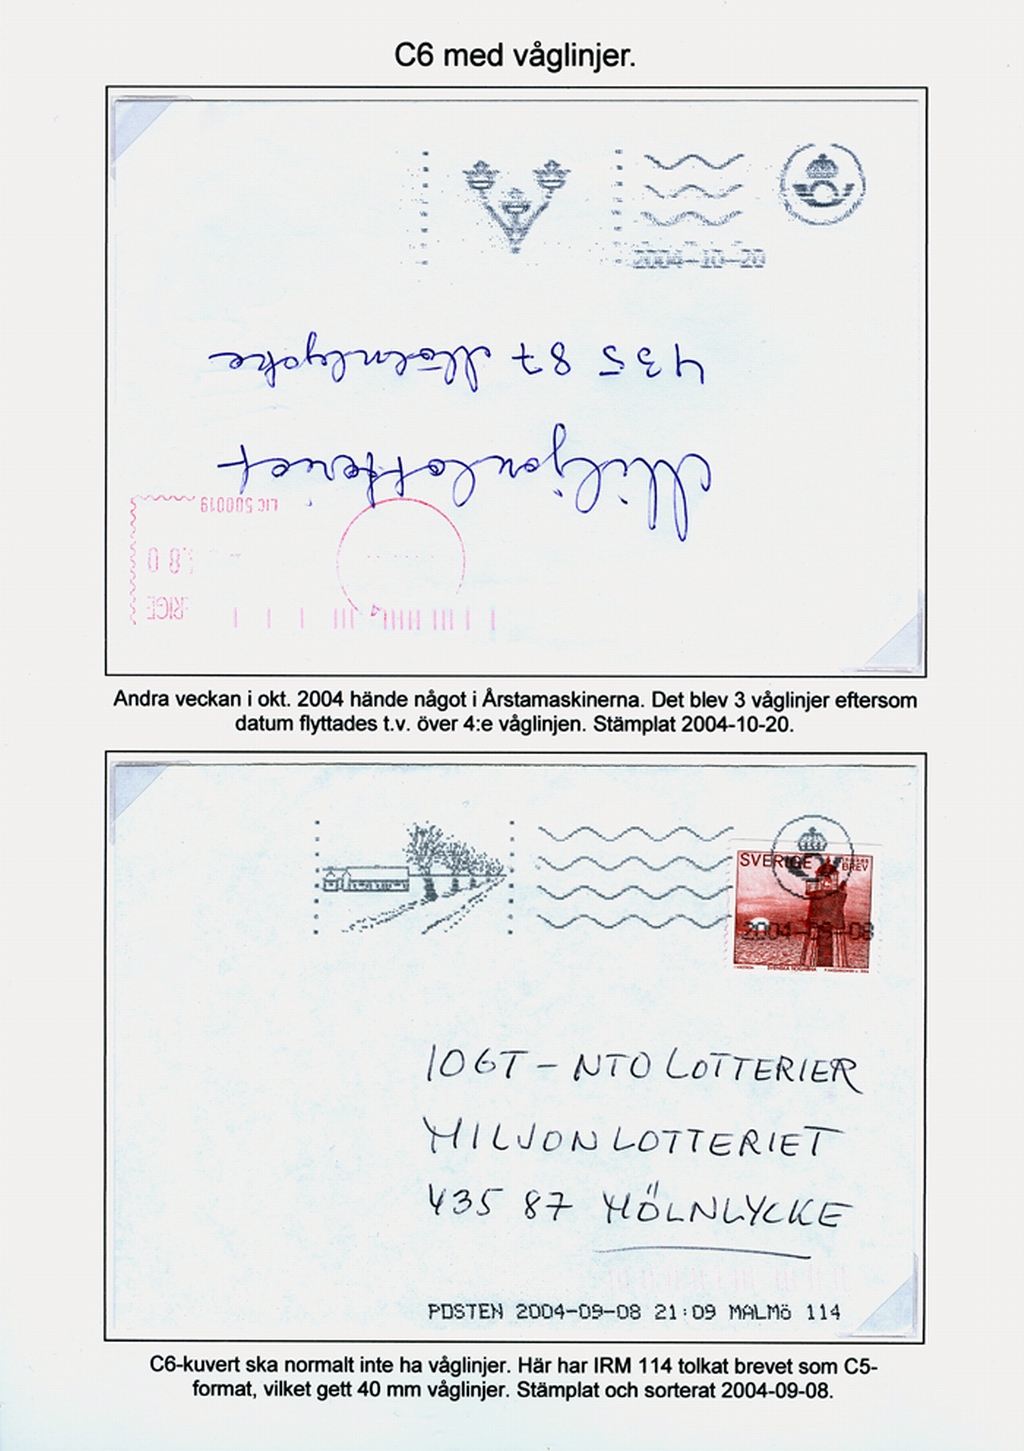 C6 med våglinjer.
2004-10-20
435 87 Mölnlycke
Miljonlotteriet
LIC 500019
80
RIGE
Andra veckan i okt. 2004 hände något i Årstamaskinerna. Det blev 3 våglinjer eftersom
datum flyttades t.v. över 4:e våglinjen. Stämplat 2004-10-20.
SVERIGE
BREV
2004-09-08
IOGT - NTO LOTTERIER
MILJONLOTTERIET
435 87 MÖLNLYCKE
POSTEN 2004-09-08 21:09 MALMÖ 114
C6-kuvert ska normalt inte ha våglinjer. Här har IRM 114 tolkat brevet som C5-
format, vilket gett 40 mm våglinjer. Stämplat och sorterat 2004-09-08.